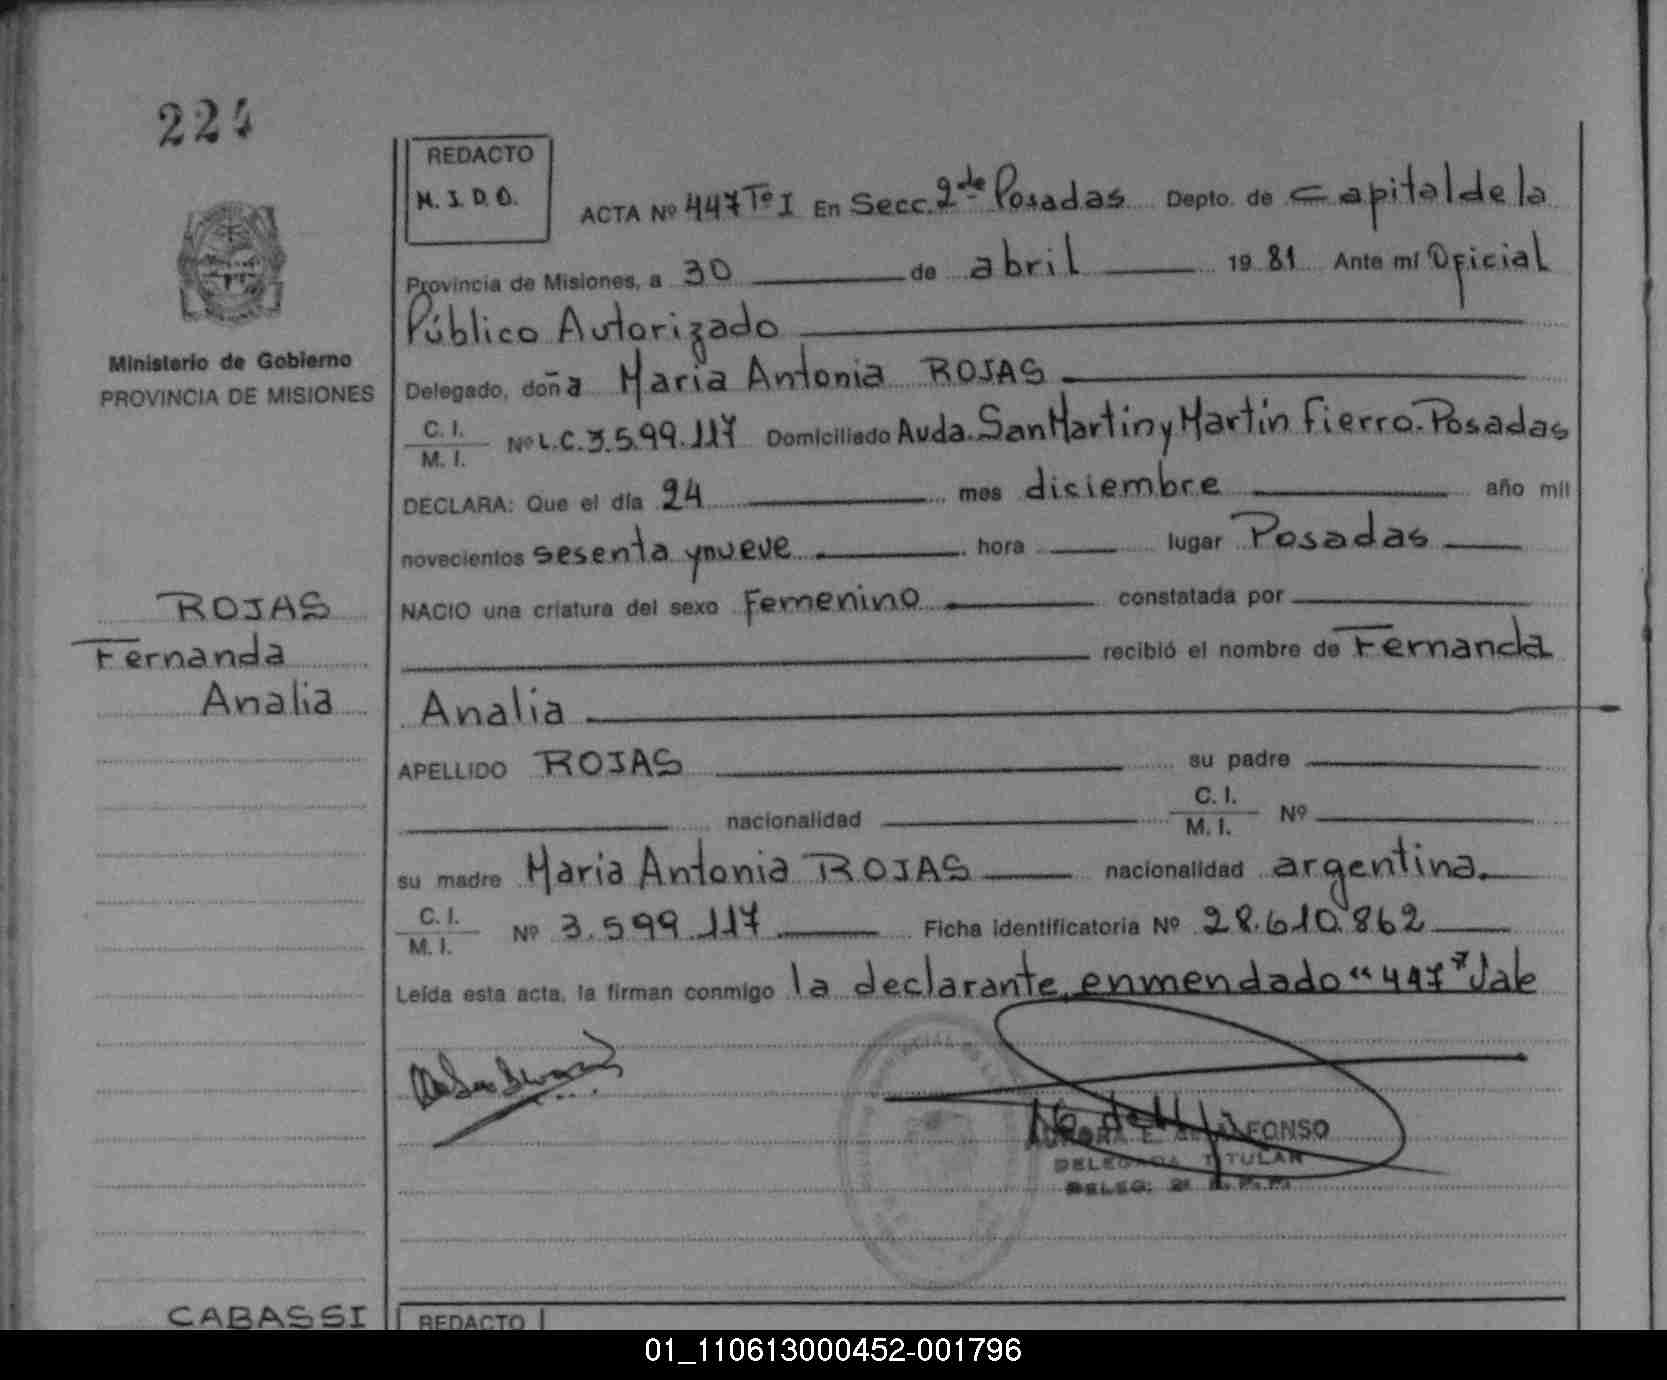 224
REDACTO
M. I. D. O.
ACTA Nº 447 Tº I En Secc. 2da Posadas Depto. de Capital de la
Provincia de Misiones, a 30 de abril 1981 Ante mí Oficial
Público Autorizado
Ministerio de Gobierno
PROVINCIA DE MISIONES
Delegado, doña Maria Antonia ROJAS
C. I.
M. I. Nº L.C. 3.599.117 Domiciliado Avda. San Martin y Martin Fierro. Posadas
DECLARA: Que el día 24 mes diciembre año mil
novecientos sesenta y nueve hora lugar Posadas
NACIO una criatura del sexo Femenino constatada por
recibió el nombre de Fernanda
Analia
ROJAS
Fernanda
Analia
APELLIDO ROJAS su padre
nacionalidad C. I.
M. I. Nº
su madre Maria Antonia ROJAS nacionalidad argentina.
C. I.
M. I. Nº 3.599.117 Ficha identificatoria Nº 28.610.862
Leída esta acta, la firman conmigo la declarante, enmendado "447" Vale
FONSO
DELEGADA TITULAR
CABASSI
REDACTO
01_110613000452-001796